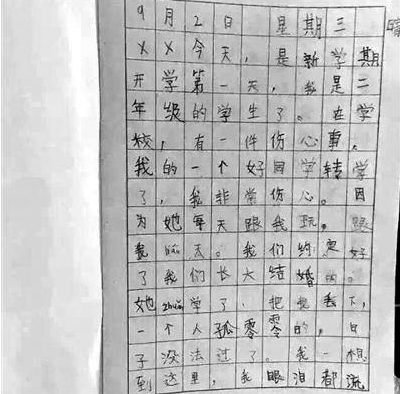 9月2日 星期三 晴
XX今天，是新学期
开学第一天，我是二
年级的学生了。在学
校，有一件伤心事，
我的一个好同学转学
了，我非常伤心。因
为她每天跟我玩。跟
我聊天。我们约定好
了我们长大结婚的。
她zhuǎn学了，把我丢下，
一个人孤零零的，日
子没法过了。我一想
到这里，我眼泪都流